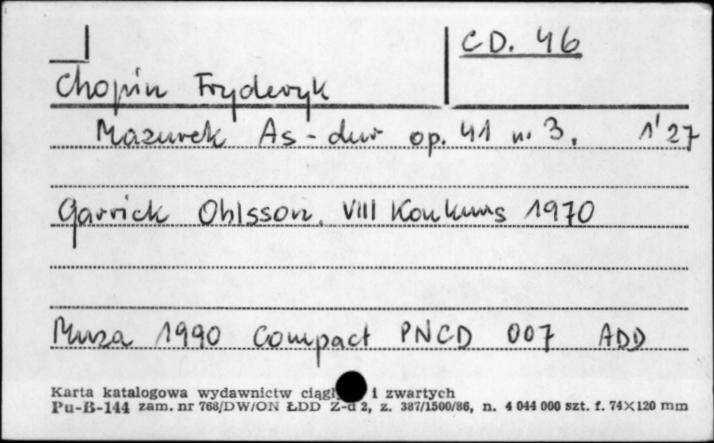 CD. 46
Chopin Fryderyk
Mazurek As-dur op. 41 nr 3. 1'27
Garrick Ohlsson, VIII Konkurs 1970
Muza 1990 Compact PNCD 007 ADD
Karta katalogowa wydawnictw ciągł i zwartych
Pu-B-144 zam. nr 768/DW/ON ŁDD Z-d 2, z. 387/1500/86, n. 4 044 000 szt. f. 74×120 mm